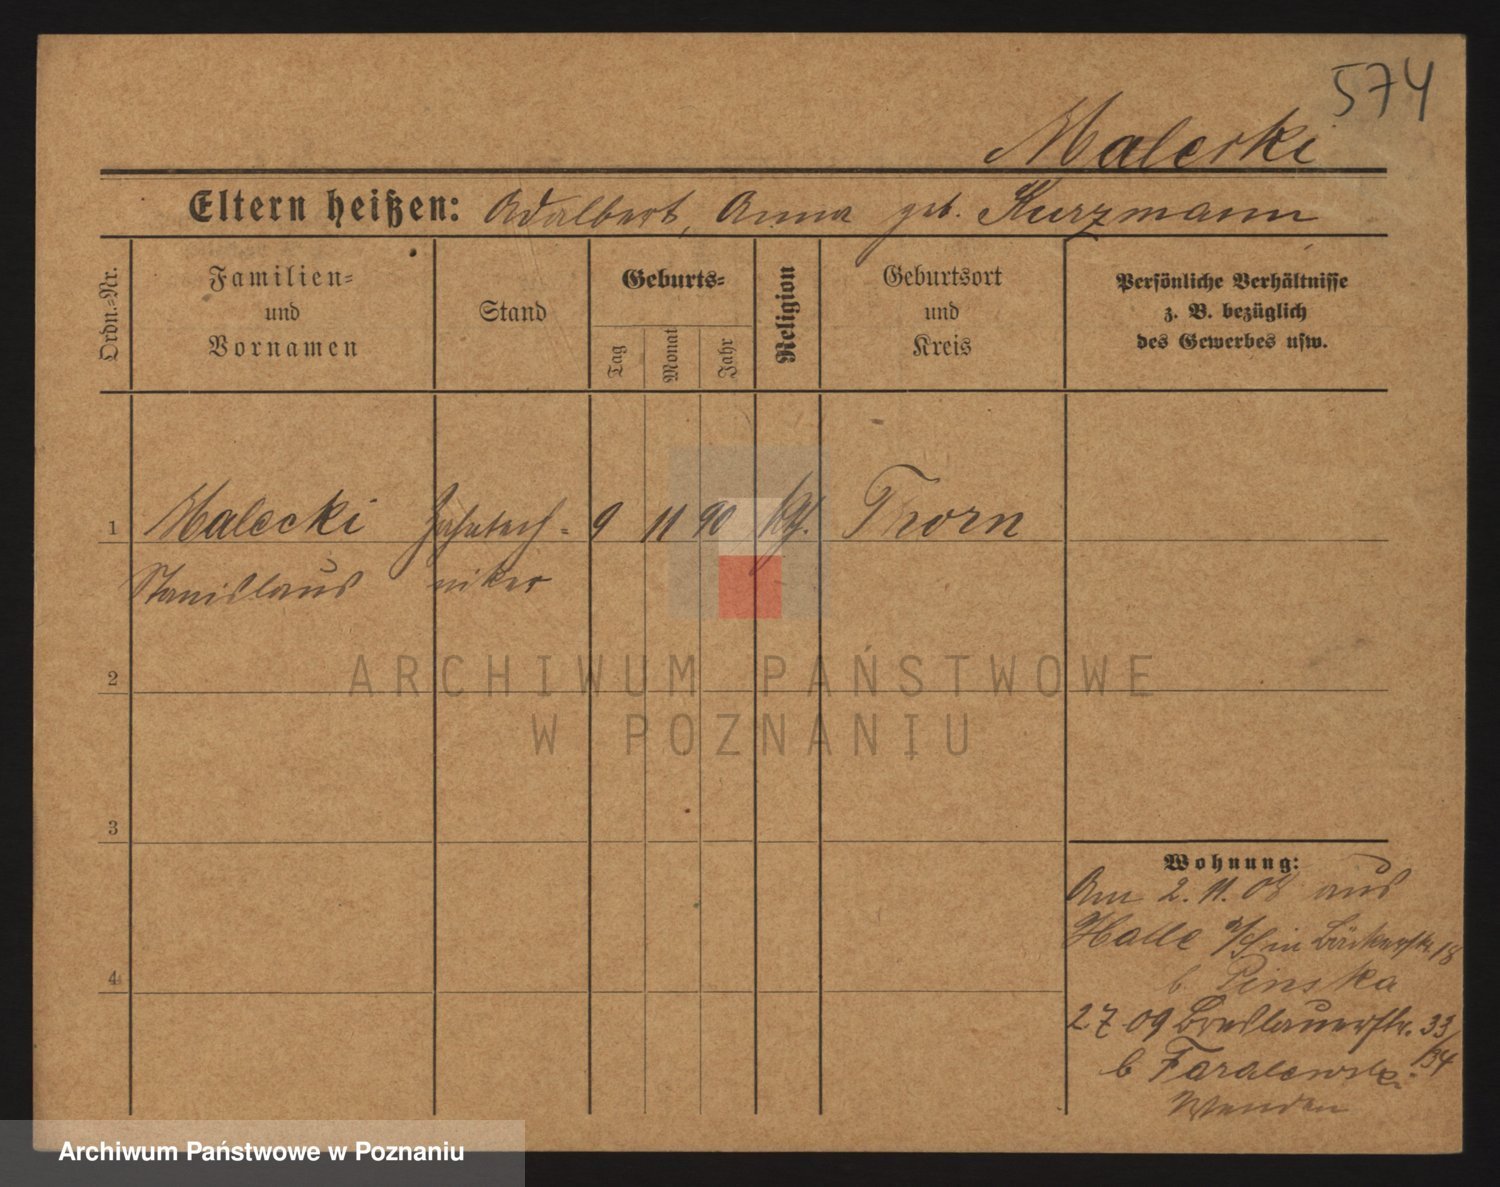 574
Malecki
Eltern heißen: Adalbert, Anna geb. Kurzmann
Ordn.=Nr.
Familien=
und
Vornamen
Stand
Geburts=
Tag
Monat
Jahr
Religion
Geburtsort
und
Kreis
Persönliche Verhältnisse
z. B. bezüglich
des Gewerbes usw.
1 Malecki Zahntech= 9 11 90 kath. Thorn
Stanislaus niker
2
3
4
ARCHIWUM PAŃSTWOWE
W POZNANIU
Wohnung:
Am 2.11.08 aus
Halle a/S in Bäckerstr. 18
b. Pinska
2 7 09 Breslauerstr. 33/34
b
Wenden
Archiwum Państwowe w Poznaniu